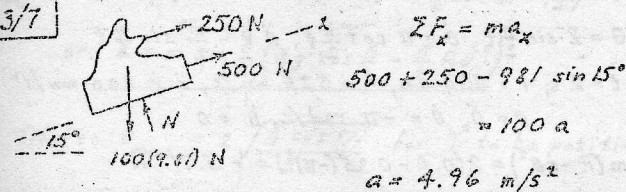 3/7
250 N
x
500 N
N
15°
100(9.81) N
ΣFₓ = maₓ
500 + 250 - 981 sin 15°
= 100 a
a = 4.96 m/s²